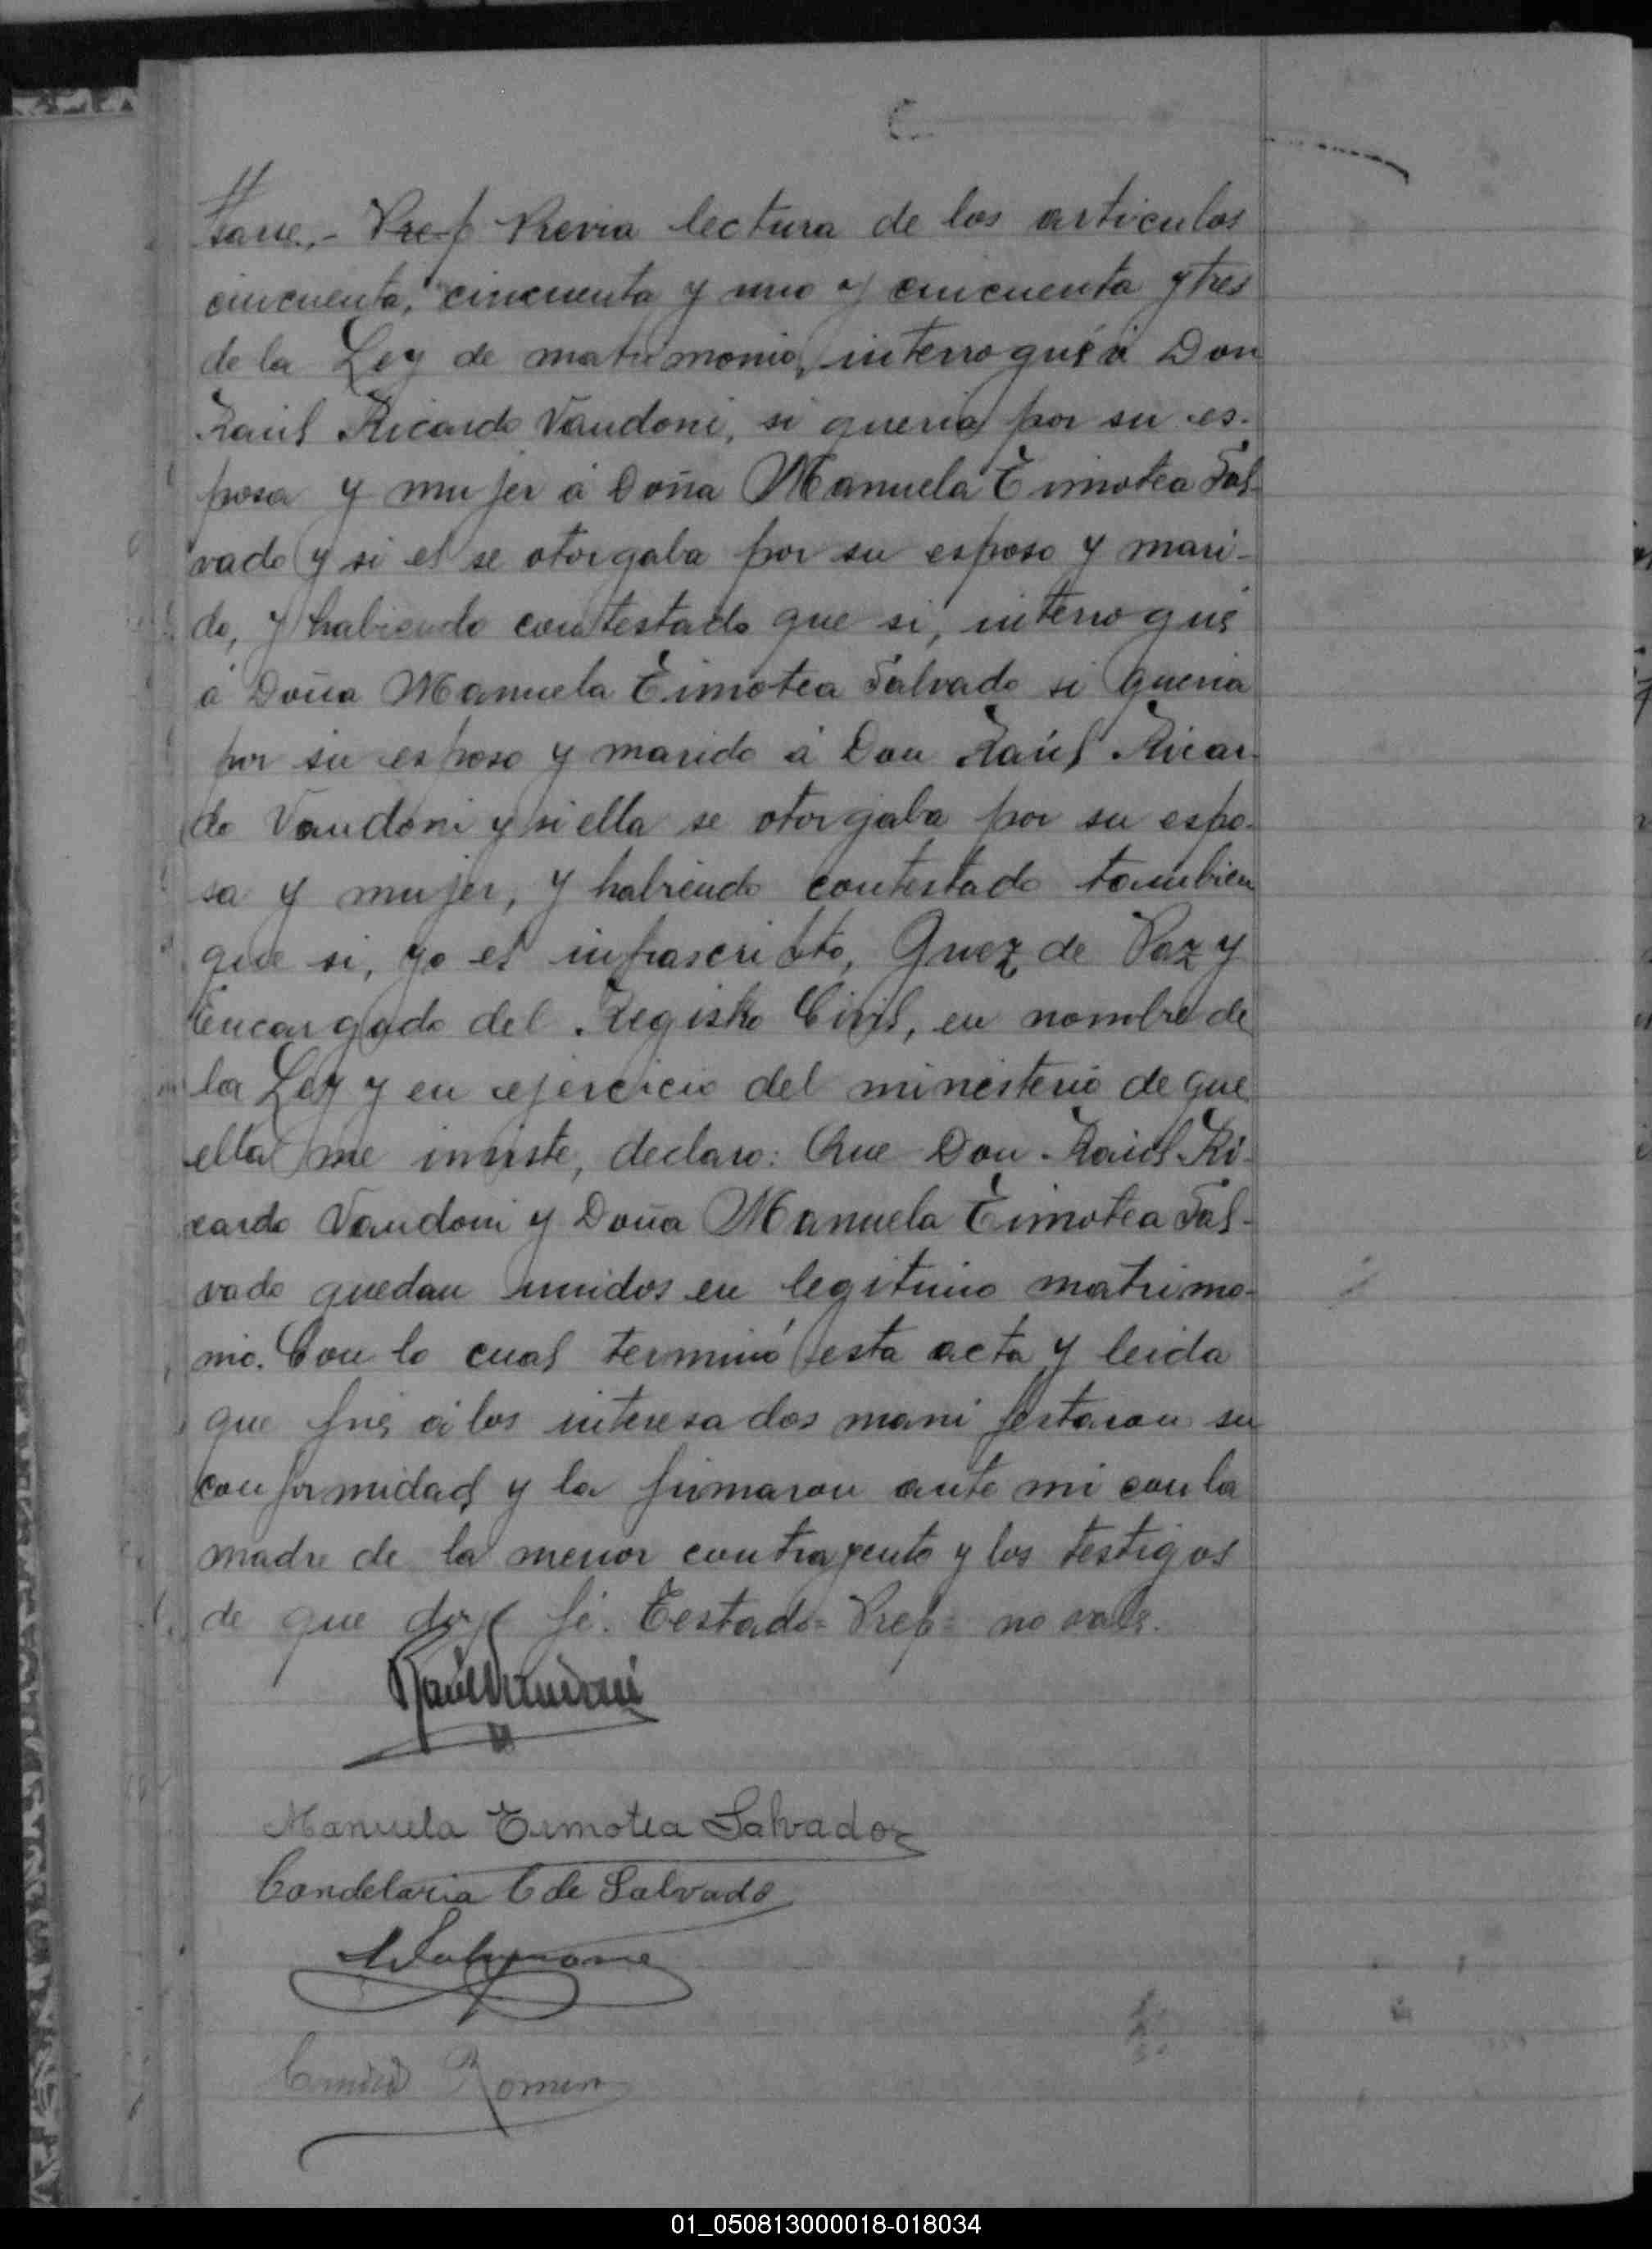 sarse.- Pref Previa lectura de los articulos
cincuenta, cincuenta y uno y cincuenta y tres
de la Ley de matrimonio, interrogué á Don
Raúl Ricardo Vandoni, si queria por su es-
posa y mujer á Doña Manuela Timotea Sal-
vado y si el se otorgaba por su esposo y mari-
do, y habiendo contestado que si, interrogué
á Doña Manuela Timotea Salvado si queria
por su esposo y marido á Don Raúl Ricar-
do Vandoni y si ella se otorgaba por su espo-
sa y mujer, y habiendo contestado tambien
que si, yo el infrascripto, Juez de Paz y
Encargado del Registro Civil, en nombre de
la Ley y en ejercicio del ministerio de que
ella me inviste, declaro: Que Don Raúl Ri-
cardo Vandoni y Doña Manuela Timotea Sal-
vado quedan unidos en legitimo matrimo-
nio. Con lo cual terminó esta acta y leida
que fué á los interesados manifestaron su
conformidad y la firmaron ante mi con la
madre de la menor contrayente y los testigos
de que doy fé. Testado= Pref= no vale.
Raúl Vandoni
Manuela Timotea Salvado
Candelaria C de Salvado
Romero
01_050813000018-018034